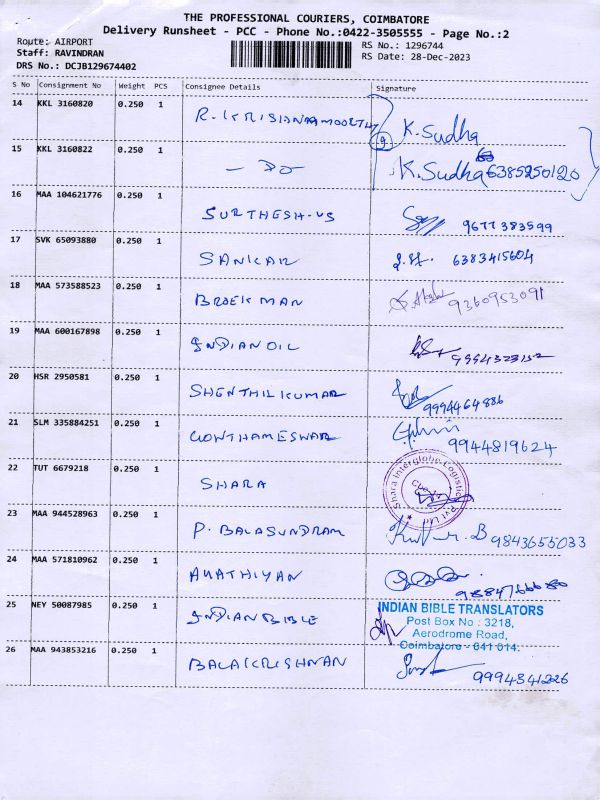 THE PROFESSIONAL COURIERS, COIMBATORE
Delivery Runsheet - PCC - Phone No.:0422-3505555 - Page No.:2
Route: AIRPORT
Staff: RAVINDRAN
DRS No.: DCJB129674402
RS No.: 1296744
RS Date: 28-Dec-2023
S No Consignment No Weight PCS Consignee Details Signature
14 KKL 3160820 0.250 1 R. KRISHNAMOORTHY K. Sudha
15 KKL 3160822 0.250 1 - DO K. Sudha 6385250120
16 MAA 104621776 0.250 1 SURTHESH-VS 9677383599
17 SVK 65093880 0.250 1 SANKAR 6383415604
18 MAA 573588523 0.250 1 BROEKMAN 9360953091
19 MAA 600167898 0.250 1 INDIAN OIL
20 HSR 2950581 0.250 1 SHENTHILKUMAR 9994464886
21 SLM 335884251 0.250 1 GOWTHAMESWAR 9944819624
22 TUT 6679218 0.250 1 SHARA Shara Interglobe Logistics Pvt Ltd
23 MAA 944528963 0.250 1 P. BALASUNDRAM 9843655033
24 MAA 571810962 0.250 1
25 NEY 50087985 0.250 1 INDIAN BIBLE INDIAN BIBLE TRANSLATORS
Post Box No : 3218,
Aerodrome Road,
Coimbatore - 641 014.
26 MAA 943853216 0.250 1 BALAKRISHNAN 9994841226